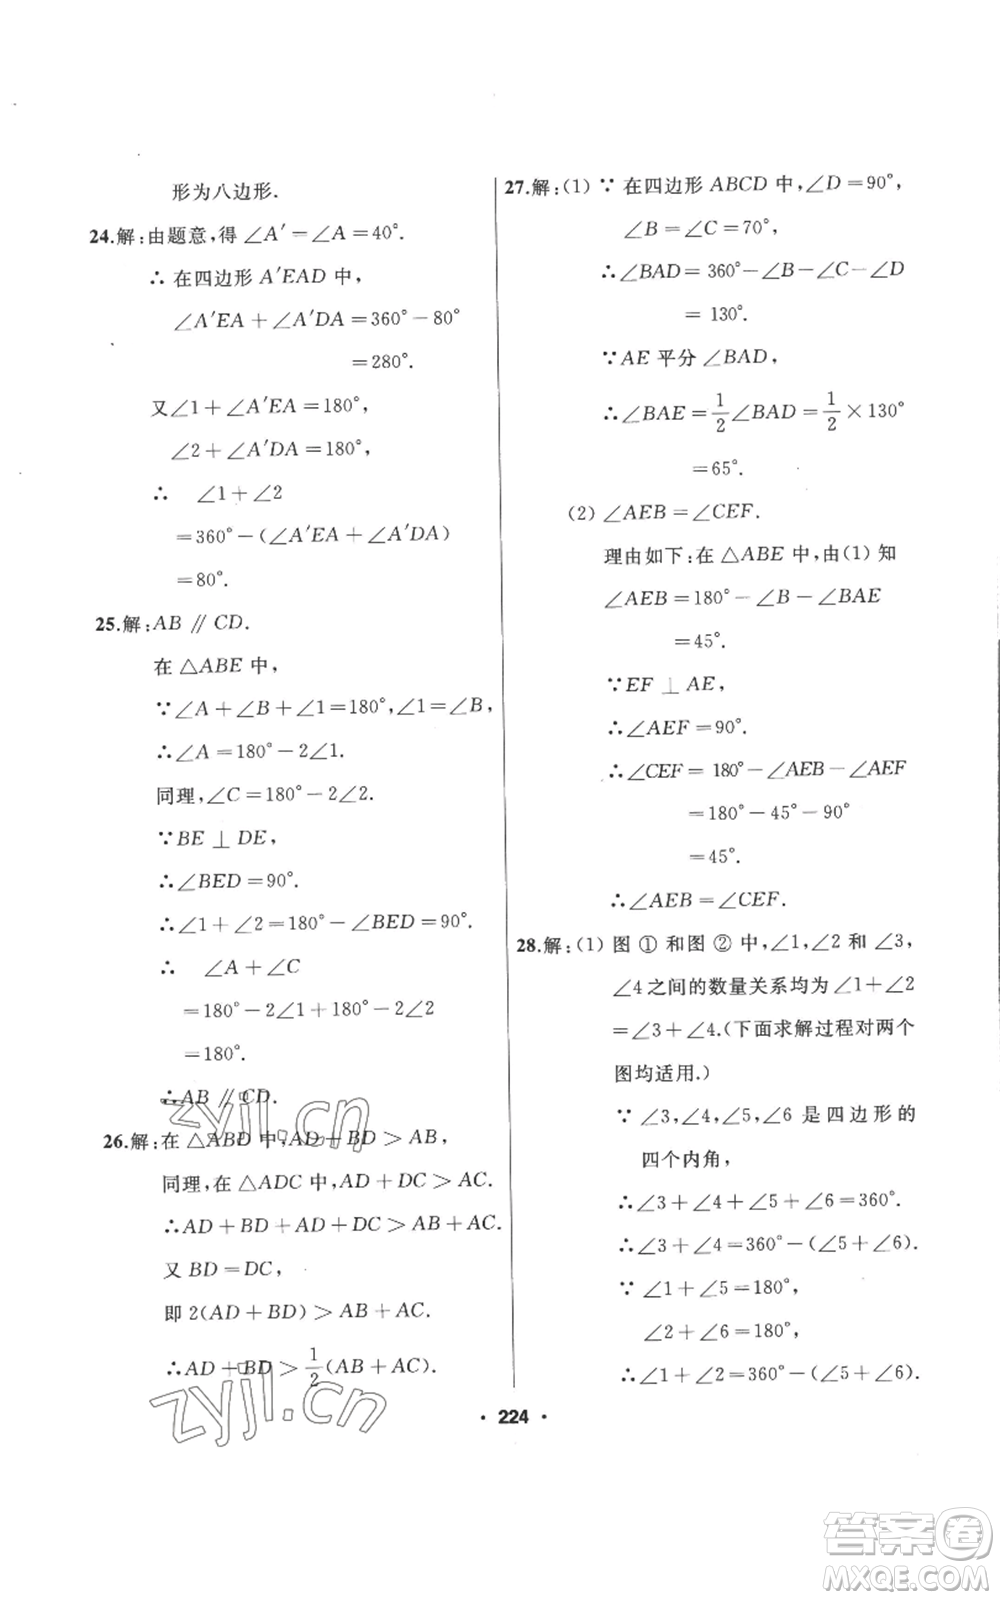 形为八边形.
24.解:由题意,得 ∠A′=∠A=40°.
∴ 在四边形 A′EAD 中,
∠A′EA+∠A′DA=360°-80°
=280°.
又∠1+∠A′EA=180°,
∠2+∠A′DA=180°,
∴ ∠1+∠2
=360°-(∠A′EA+∠A′DA)
=80°.
25.解:AB∥CD.
在 △ABE 中,
∵∠A+∠B+∠1=180°,∠1=∠B,
∴∠A=180°-2∠1.
同理,∠C=180°-2∠2.
∵BE⊥DE,
∴∠BED=90°.
∴∠1+∠2=180°-∠BED=90°.
∴ ∠A+∠C
=180°-2∠1+180°-2∠2
=180°.
∴AB∥CD.
26.解:在 △ABD 中,AD+BD>AB,
同理,在 △ADC 中,AD+DC>AC.
∴AD+BD+AD+DC>AB+AC.
又 BD=DC,
即 2(AD+BD)>AB+AC.
∴AD+BD>1/2(AB+AC).
27.解:(1) ∵ 在四边形 ABCD 中,∠D=90°,
∠B=∠C=70°,
∴∠BAD=360°-∠B-∠C-∠D
=130°.
∵AE 平分 ∠BAD,
∴∠BAE=1/2∠BAD=1/2×130°
=65°.
(2) ∠AEB=∠CEF.
理由如下:在 △ABE 中,由(1)知
∠AEB=180°-∠B-∠BAE
=45°.
∵EF⊥AE,
∴∠AEF=90°.
∴∠CEF=180°-∠AEB-∠AEF
=180°-45°-90°
=45°.
∴∠AEB=∠CEF.
28.解:(1) 图 ① 和图 ② 中,∠1,∠2 和 ∠3,
∠4 之间的数量关系均为 ∠1+∠2
=∠3+∠4.(下面求解过程对两个
图均适用.)
∵ ∠3,∠4,∠5,∠6 是四边形的
四个内角,
∴∠3+∠4+∠5+∠6=360°.
∴∠3+∠4=360°-(∠5+∠6).
∵ ∠1+∠5=180°,
∠2+∠6=180°,
∴∠1+∠2=360°-(∠5+∠6).
· 224 ·
zyjl.cn
zyjl.cn
答案卷
MXQE.COM